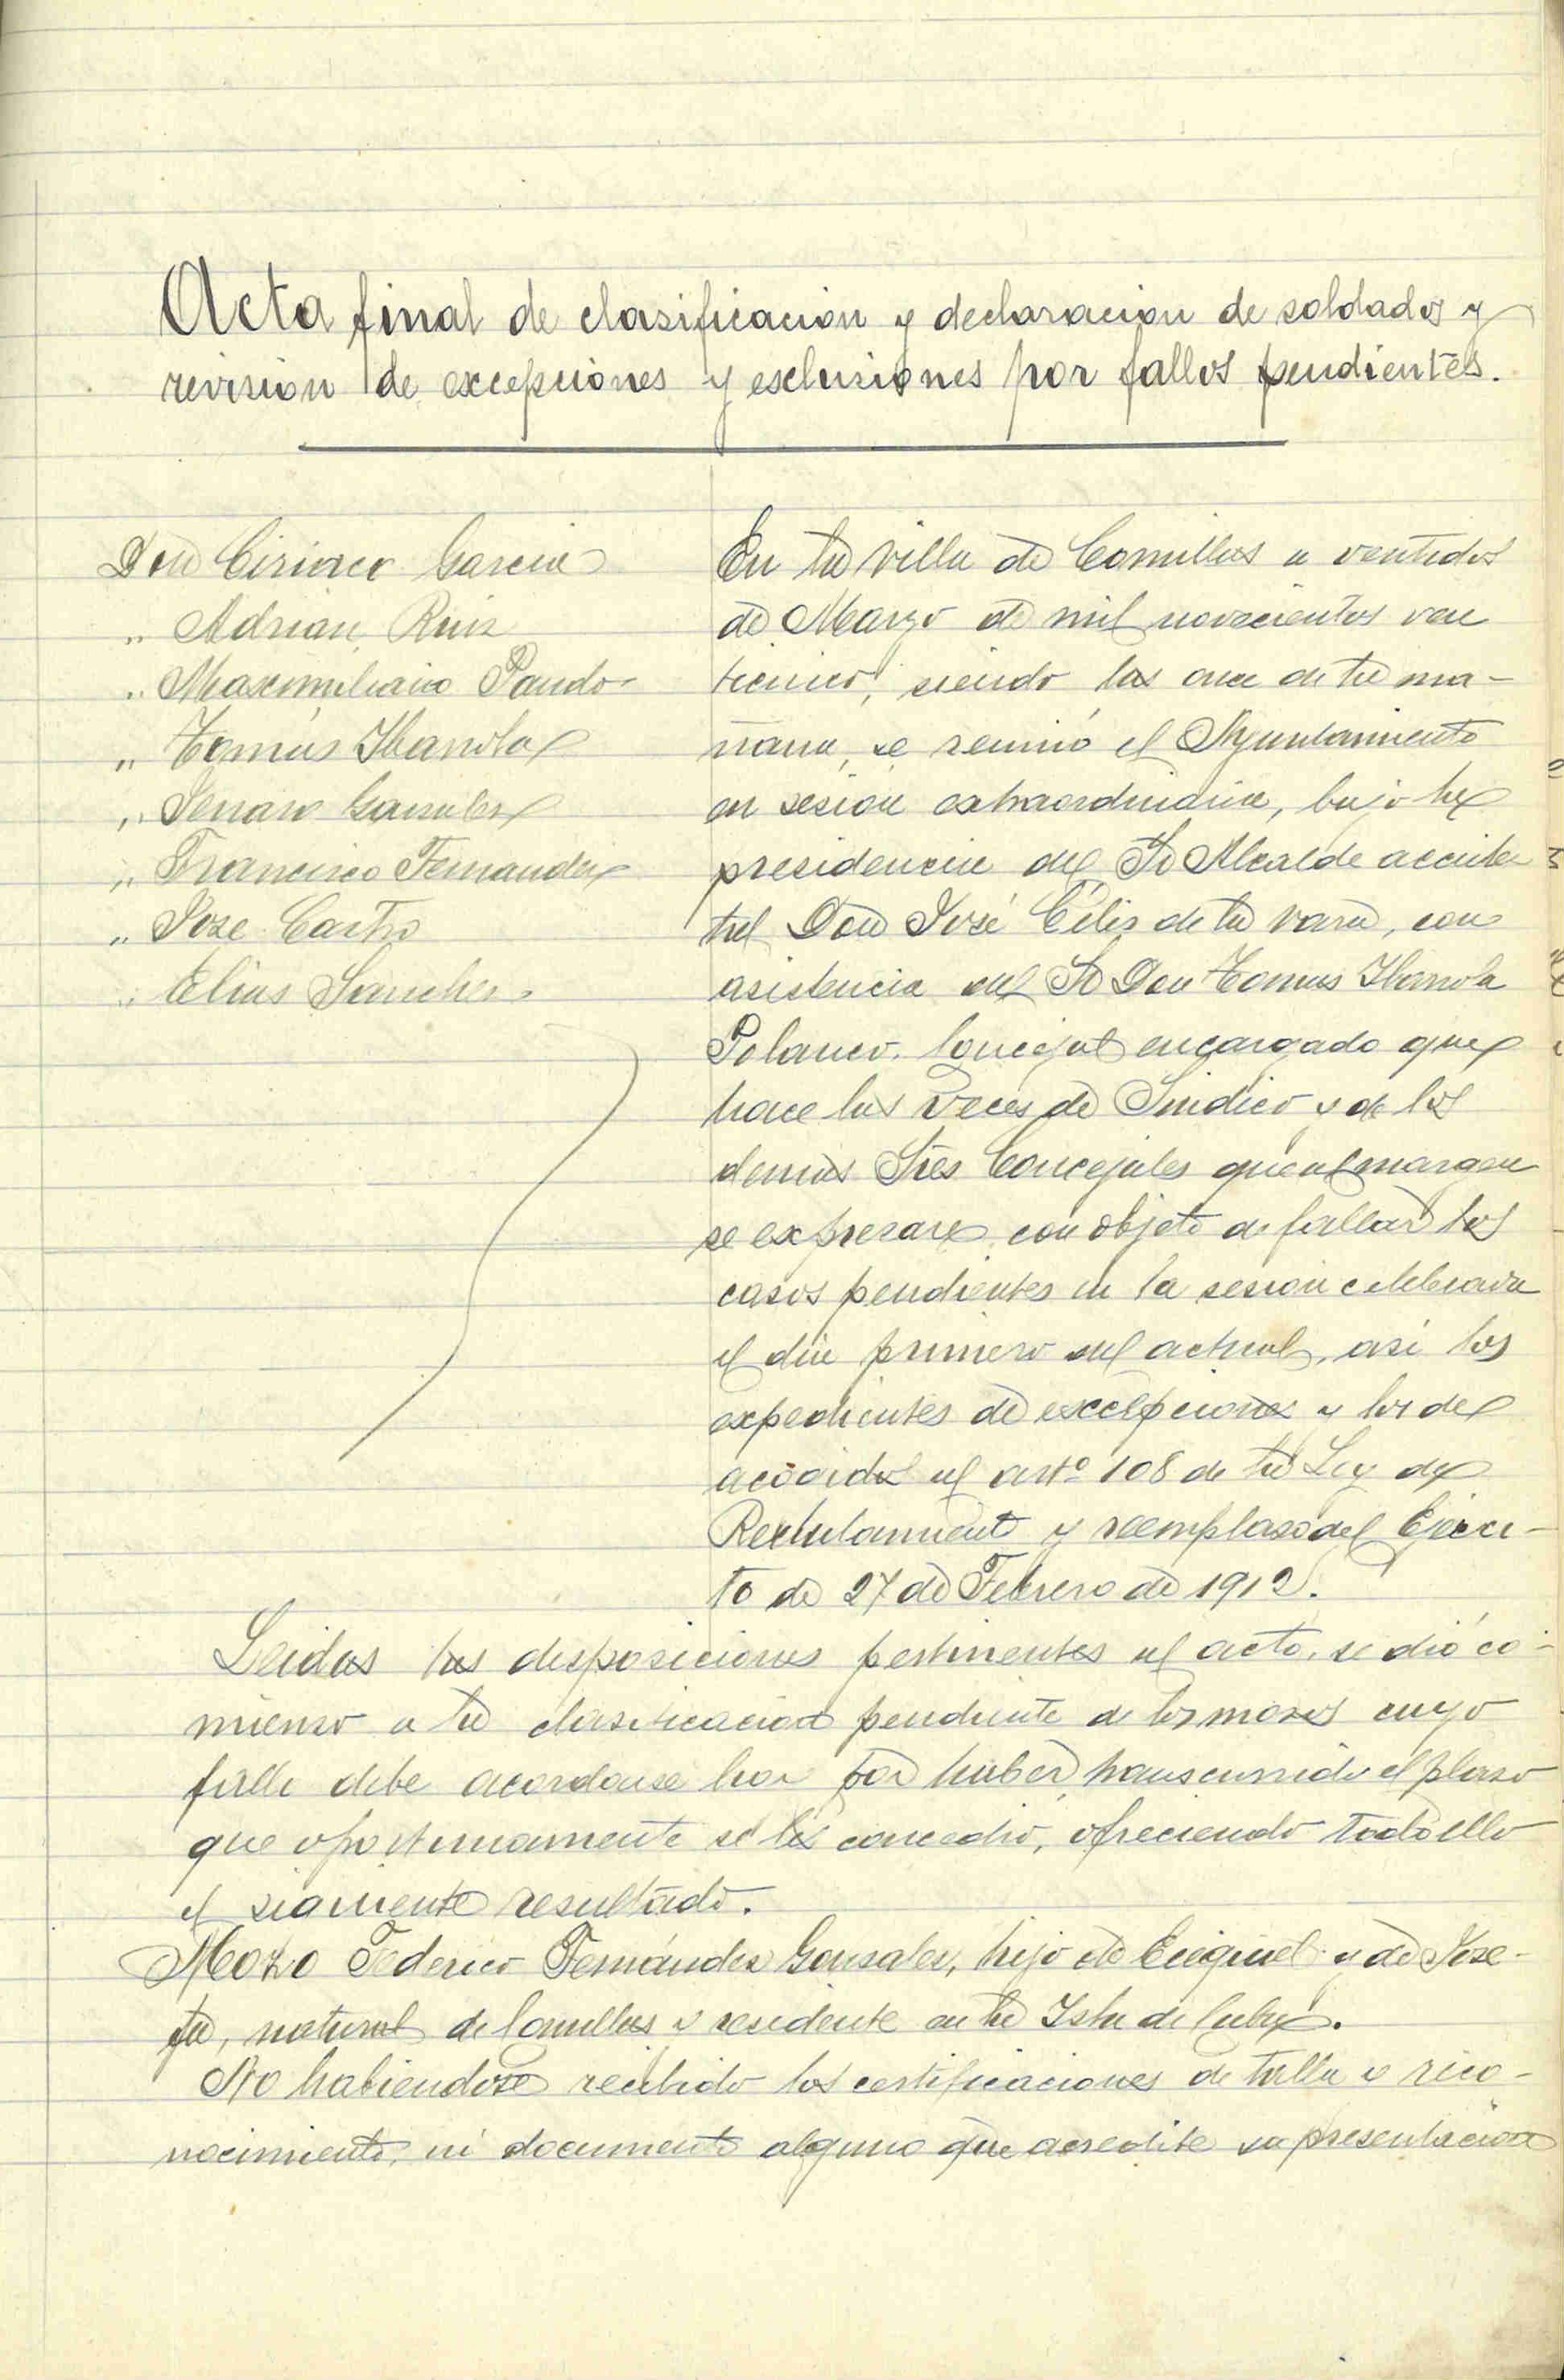 Acta final de clasificación y declaracion de soldados y
revision de excepciones y esclusiones por fallos pendientes.
Don Ciriaco Garcia
" Adrian Ruiz
" Maximiliano Pando
" Tomás Ibarrola
" Genaro Gonzalez
" Francisco Fernandez
" Jose Castro
" Elias Sanchez
En la villa de Comillas a ventidos
de Marzo de mil novecientos ven
ticinco, siendo las once de la ma-
ñana, se reunió el Ayuntamiento
en sesión extraordinaria, bajo la
presidencia del Sr Alcalde acciden
tal Don José Célis de la vara, con
asistencia del Sr Don Tomas Ibarrola
Polanco. Concejal encargado que
hace las veces de Sindico y de los
demás Sres Concejales que al margen
se expresan con objeto de fallar los
casos pendientes en la sesión celebrada
el día primero del actual, asi los
expedientes de excepciones y los de
acogidos al artº 108 de la Ley de
Reclutamiento y reemplazo del Ejerci-
to de 27 de Febrero de 1912.
Leidas las disposiciones pertinentes al acto, se dió co-
mienzo a la clasificación pendiente de los mozos cuyo
fallo debe acordarse hoy por haber transcurrido el plazo
que oportunamente se les concedió, ofreciendo todo ello
el siguiente resultado.
Mozo Federico Fernández Gonzalez, hijo de Eciquiel y de Jose-
fa, natural de Comillas y residente en la Isla de Cuba.
No habiendose recibido las certificaciones de talla y reco-
nocimiento, ni documento alguno que acredite su presentación